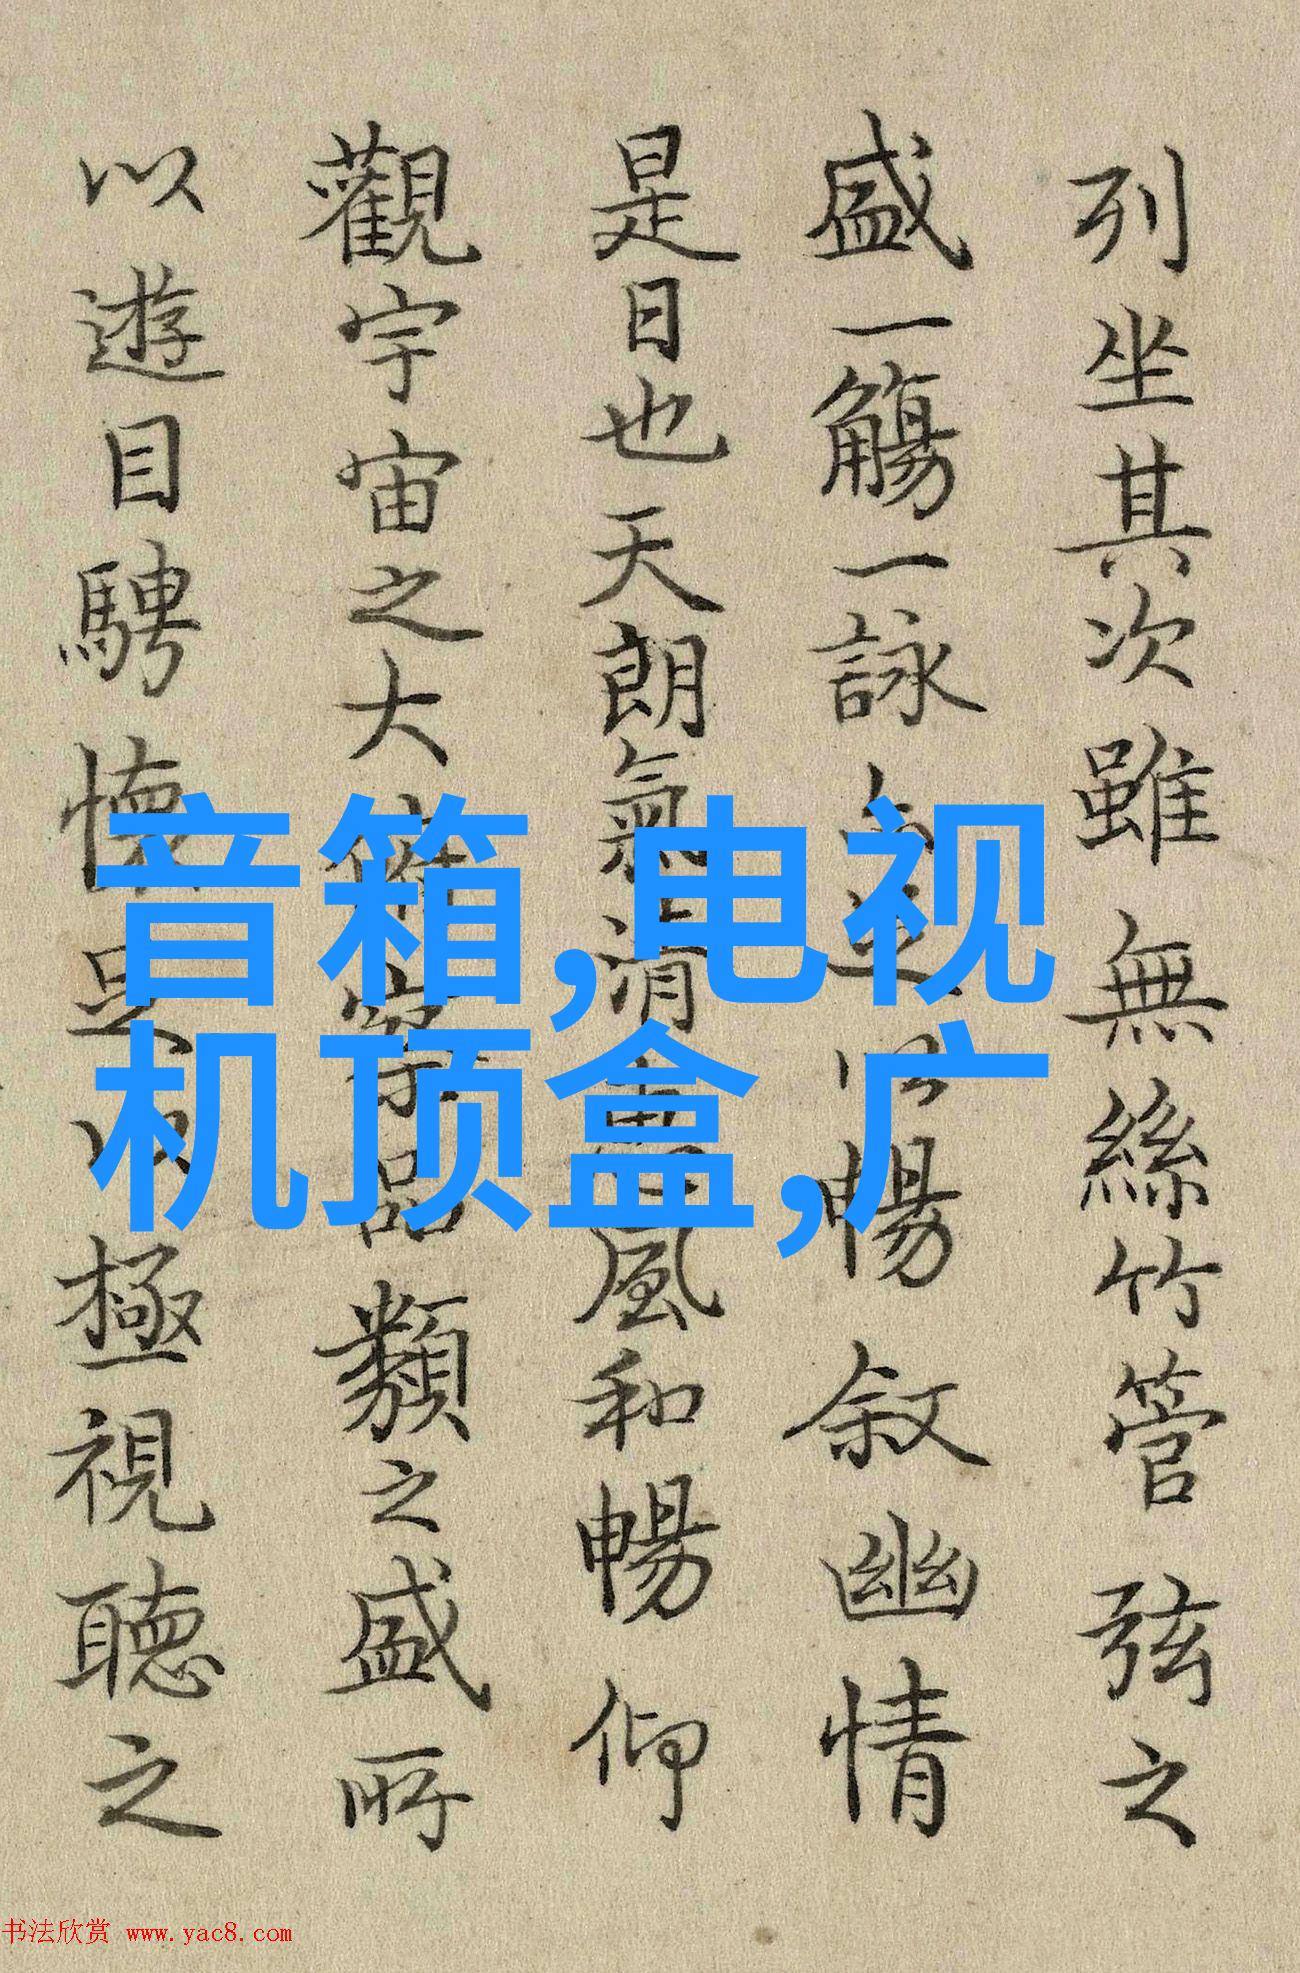 列坐其次雖無絲竹管弦之
盛一觴一詠亦足以暢叙幽情
是日也天朗氣清惠風和暢仰
觀宇宙之大俯察品類之盛所
以遊目騁懷足以極視聽之
音箱,电视
机顶盒,广
书法欣赏 www.yac8.com